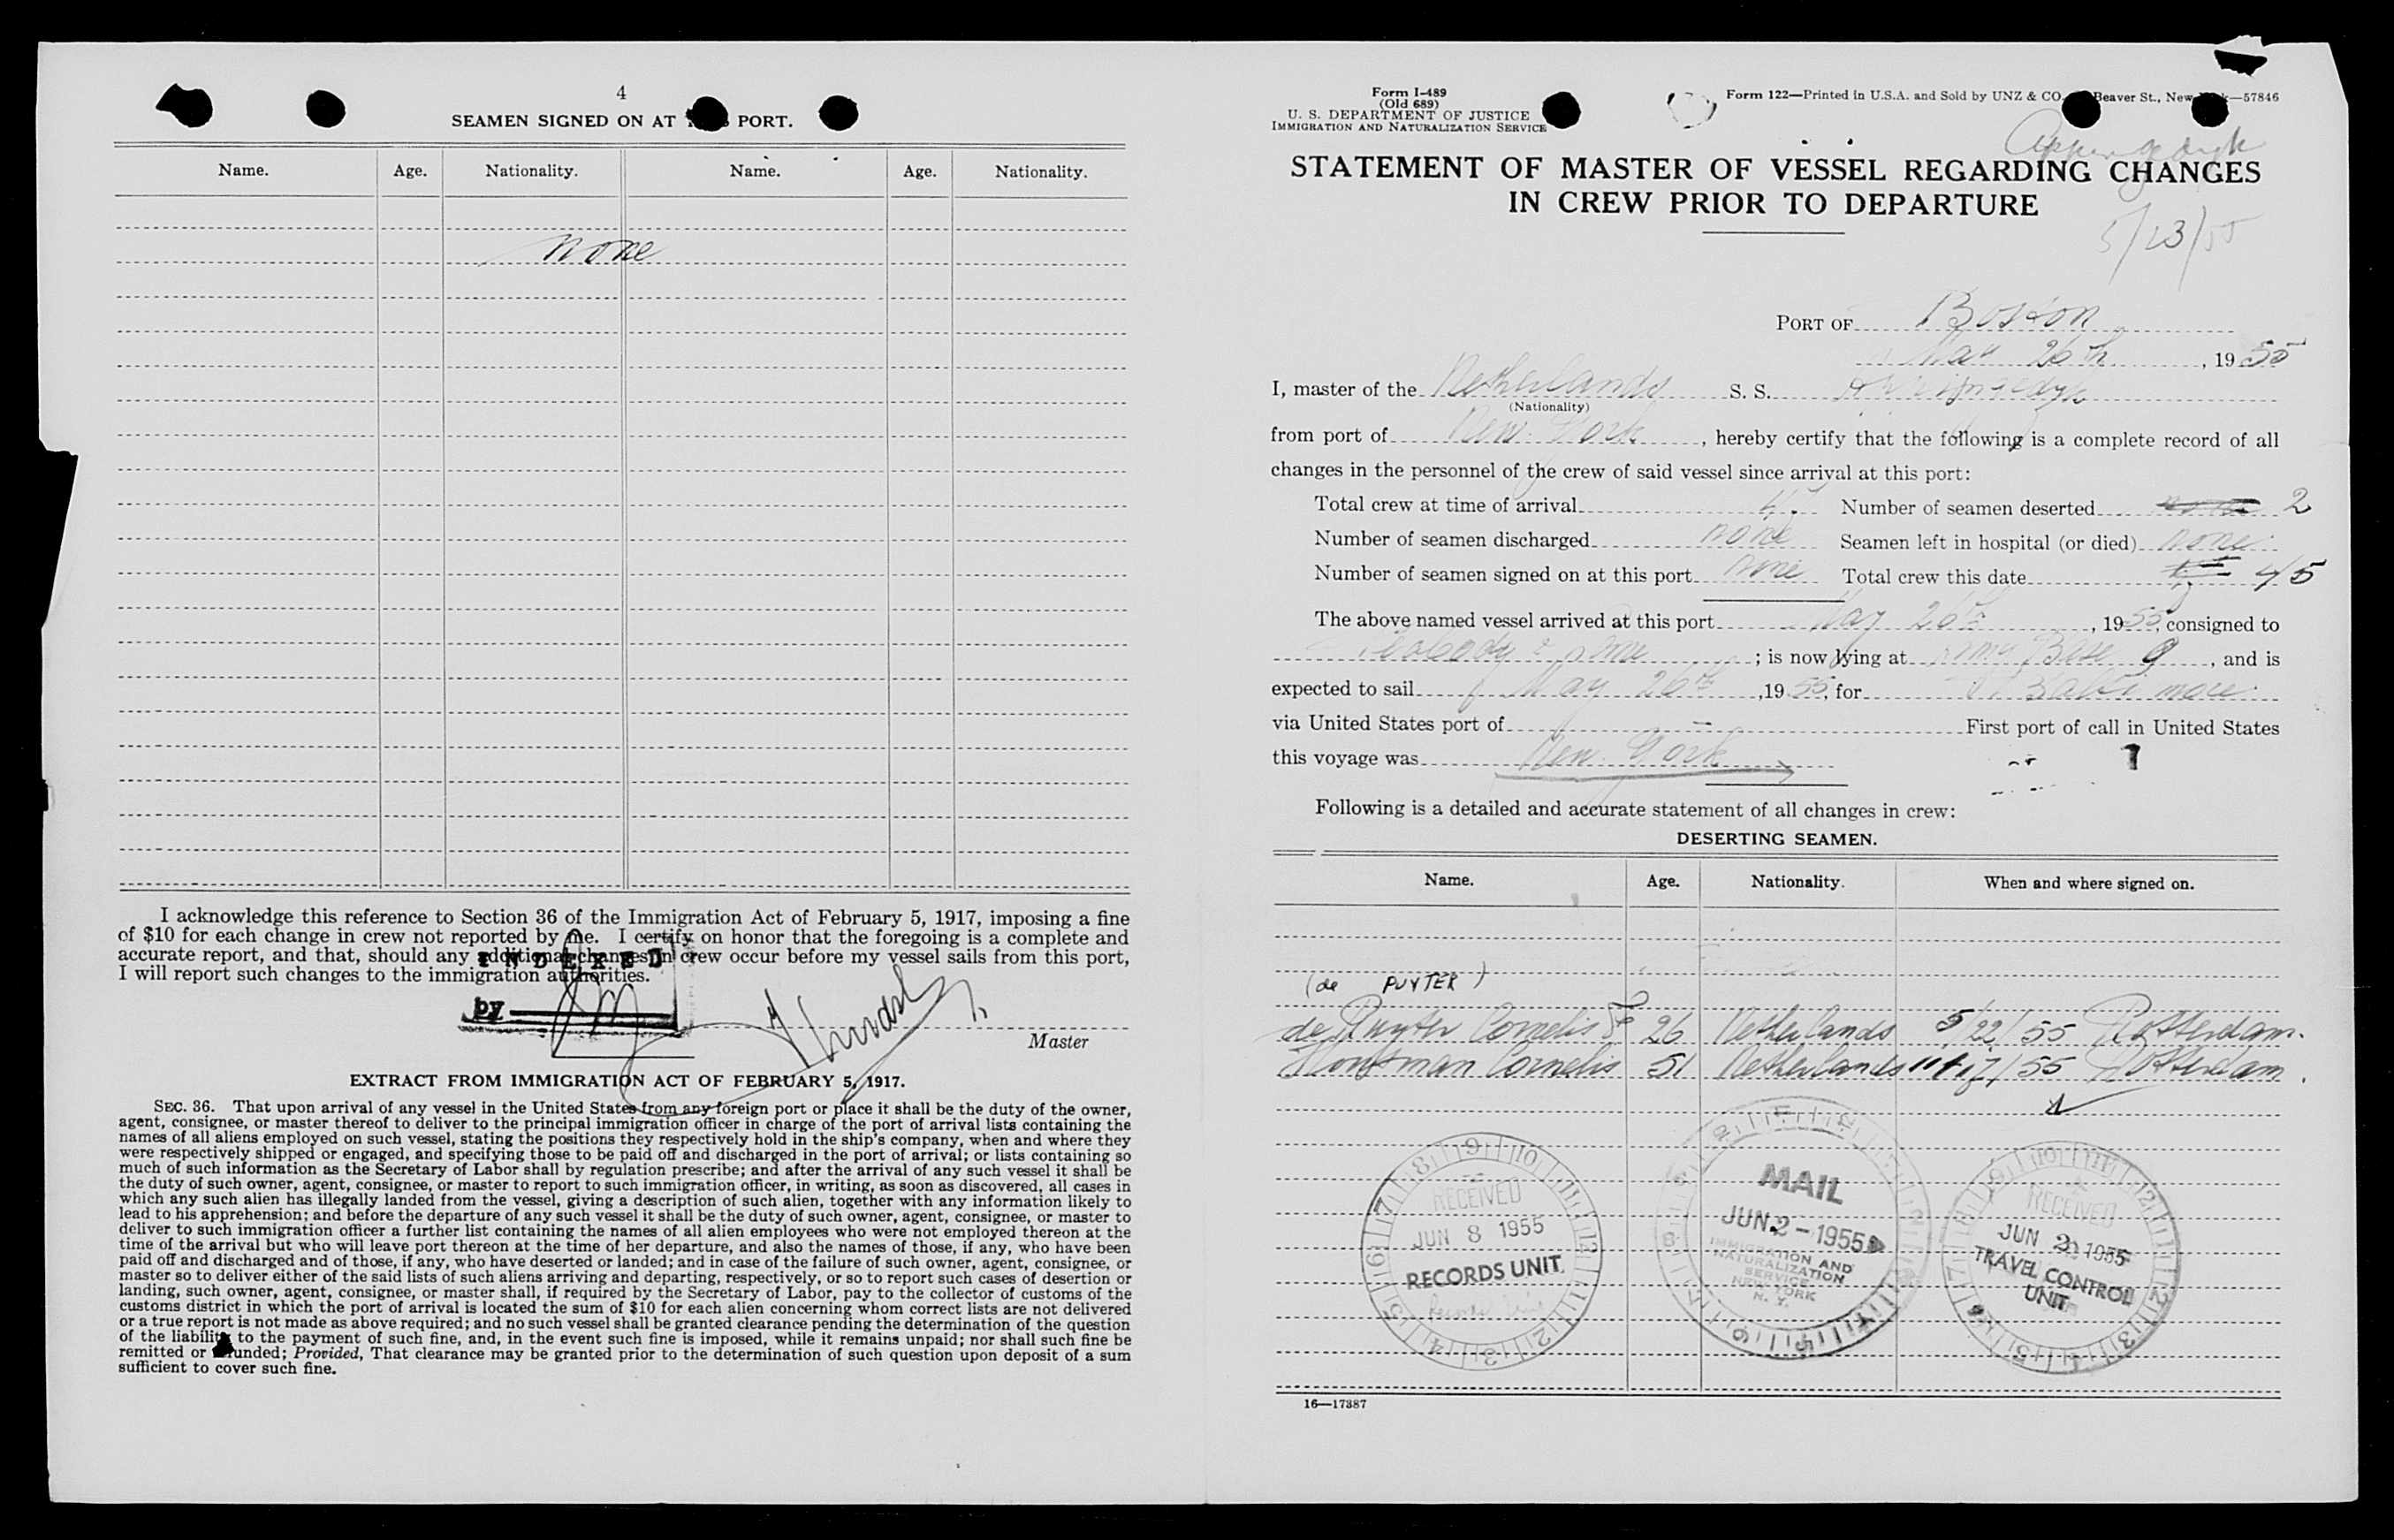 4
SEAMEN SIGNED ON AT PORT.
Name. Age. Nationality. Name. Age. Nationality.
none
I acknowledge this reference to Section 36 of the Immigration Act of February 5, 1917, imposing a fine
of $10 for each change in crew not reported by me. I certify on honor that the foregoing is a complete and
accurate report, and that, should any additional changes in crew occur before my vessel sails from this port,
I will report such changes to the immigration authorities.
INDEXED
by
Master
EXTRACT FROM IMMIGRATION ACT OF FEBRUARY 5, 1917.
SEC. 36. That upon arrival of any vessel in the United States from any foreign port or place it shall be the duty of the owner,
agent, consignee, or master thereof to deliver to the principal immigration officer in charge of the port of arrival lists containing the
names of all aliens employed on such vessel, stating the positions they respectively hold in the ship's company, when and where they
were respectively shipped or engaged, and specifying those to be paid off and discharged in the port of arrival; or lists containing so
much of such information as the Secretary of Labor shall by regulation prescribe; and after the arrival of any such vessel it shall be
the duty of such owner, agent, consignee, or master to report to such immigration officer, in writing, as soon as discovered, all cases in
which any such alien has illegally landed from the vessel, giving a description of such alien, together with any information likely to
lead to his apprehension; and before the departure of any such vessel it shall be the duty of such owner, agent, consignee, or master to
deliver to such immigration officer a further list containing the names of all alien employees who were not employed thereon at the
time of the arrival but who will leave port thereon at the time of her departure, and also the names of those, if any, who have been
paid off and discharged and of those, if any, who have deserted or landed; and in case of the failure of such owner, agent, consignee, or
master so to deliver either of the said lists of such aliens arriving and departing, respectively, or so to report such cases of desertion or
landing, such owner, agent, consignee, or master shall, if required by the Secretary of Labor, pay to the collector of customs of the
customs district in which the port of arrival is located the sum of $10 for each alien concerning whom correct lists are not delivered
or a true report is not made as above required; and no such vessel shall be granted clearance pending the determination of the question
of the liability to the payment of such fine, and, in the event such fine is imposed, while it remains unpaid; nor shall such fine be
remitted or refunded; Provided, That clearance may be granted prior to the determination of such question upon deposit of a sum
sufficient to cover such fine.
Form I-489
(Old 689)
U. S. DEPARTMENT OF JUSTICE
IMMIGRATION AND NATURALIZATION SERVICE
Form 122—Printed in U.S.A. and Sold by UNZ & CO. Beaver St., New —57846
Appingedyk
STATEMENT OF MASTER OF VESSEL REGARDING CHANGES
IN CREW PRIOR TO DEPARTURE
5/23/55
PORT OF Boston
May 26th, 19 55
I, master of the Netherlands S. S. Appingedyk
(Nationality)
from port of New York, hereby certify that the following is a complete record of all
changes in the personnel of the crew of said vessel since arrival at this port:
Total crew at time of arrival Number of seamen deserted 2
Number of seamen discharged none Seamen left in hospital (or died) none
Number of seamen signed on at this port none Total crew this date 45
The above named vessel arrived at this port May 26th, 1955, consigned to
Peabody & ; is now lying at Army Base 9, and is
expected to sail May 26th, 1955, for Baltimore
via United States port of — First port of call in United States
this voyage was New York
Following is a detailed and accurate statement of all changes in crew:
DESERTING SEAMEN.
Name. Age. Nationality. When and where signed on.
(de PUYTER)
de Ruyter Cornelis 26 Netherlands 5/22/55 Rotterdam.
Cornelis 51 Netherlands /55 Rotterdam.
RECEIVED
JUN 8 1955
RECORDS UNIT
MAIL
JUN 2-1955
IMMIGRATION AND
NATURALIZATION
SERVICE
NEW YORK
N. Y.
RECEIVED
JUN 1955
TRAVEL CONTROL
UNIT
16—17387